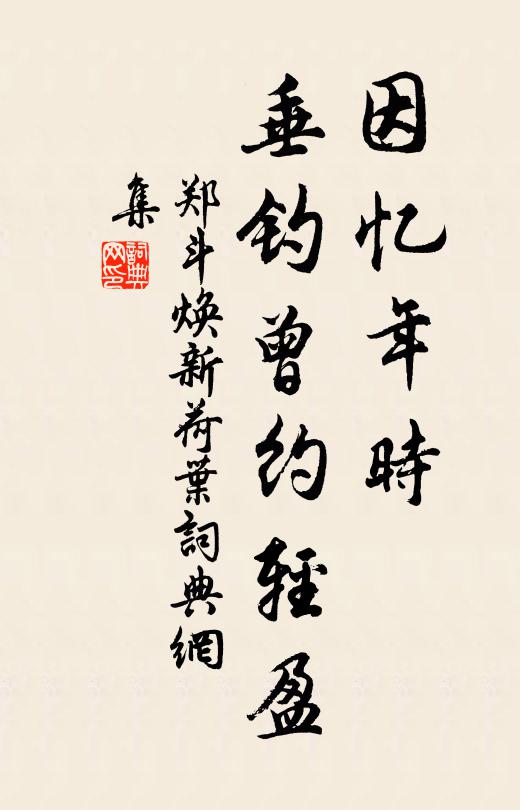 因忆年時
垂钓曾约輕盈
郑斗焕新荷葉詞典網
集
詞典網印